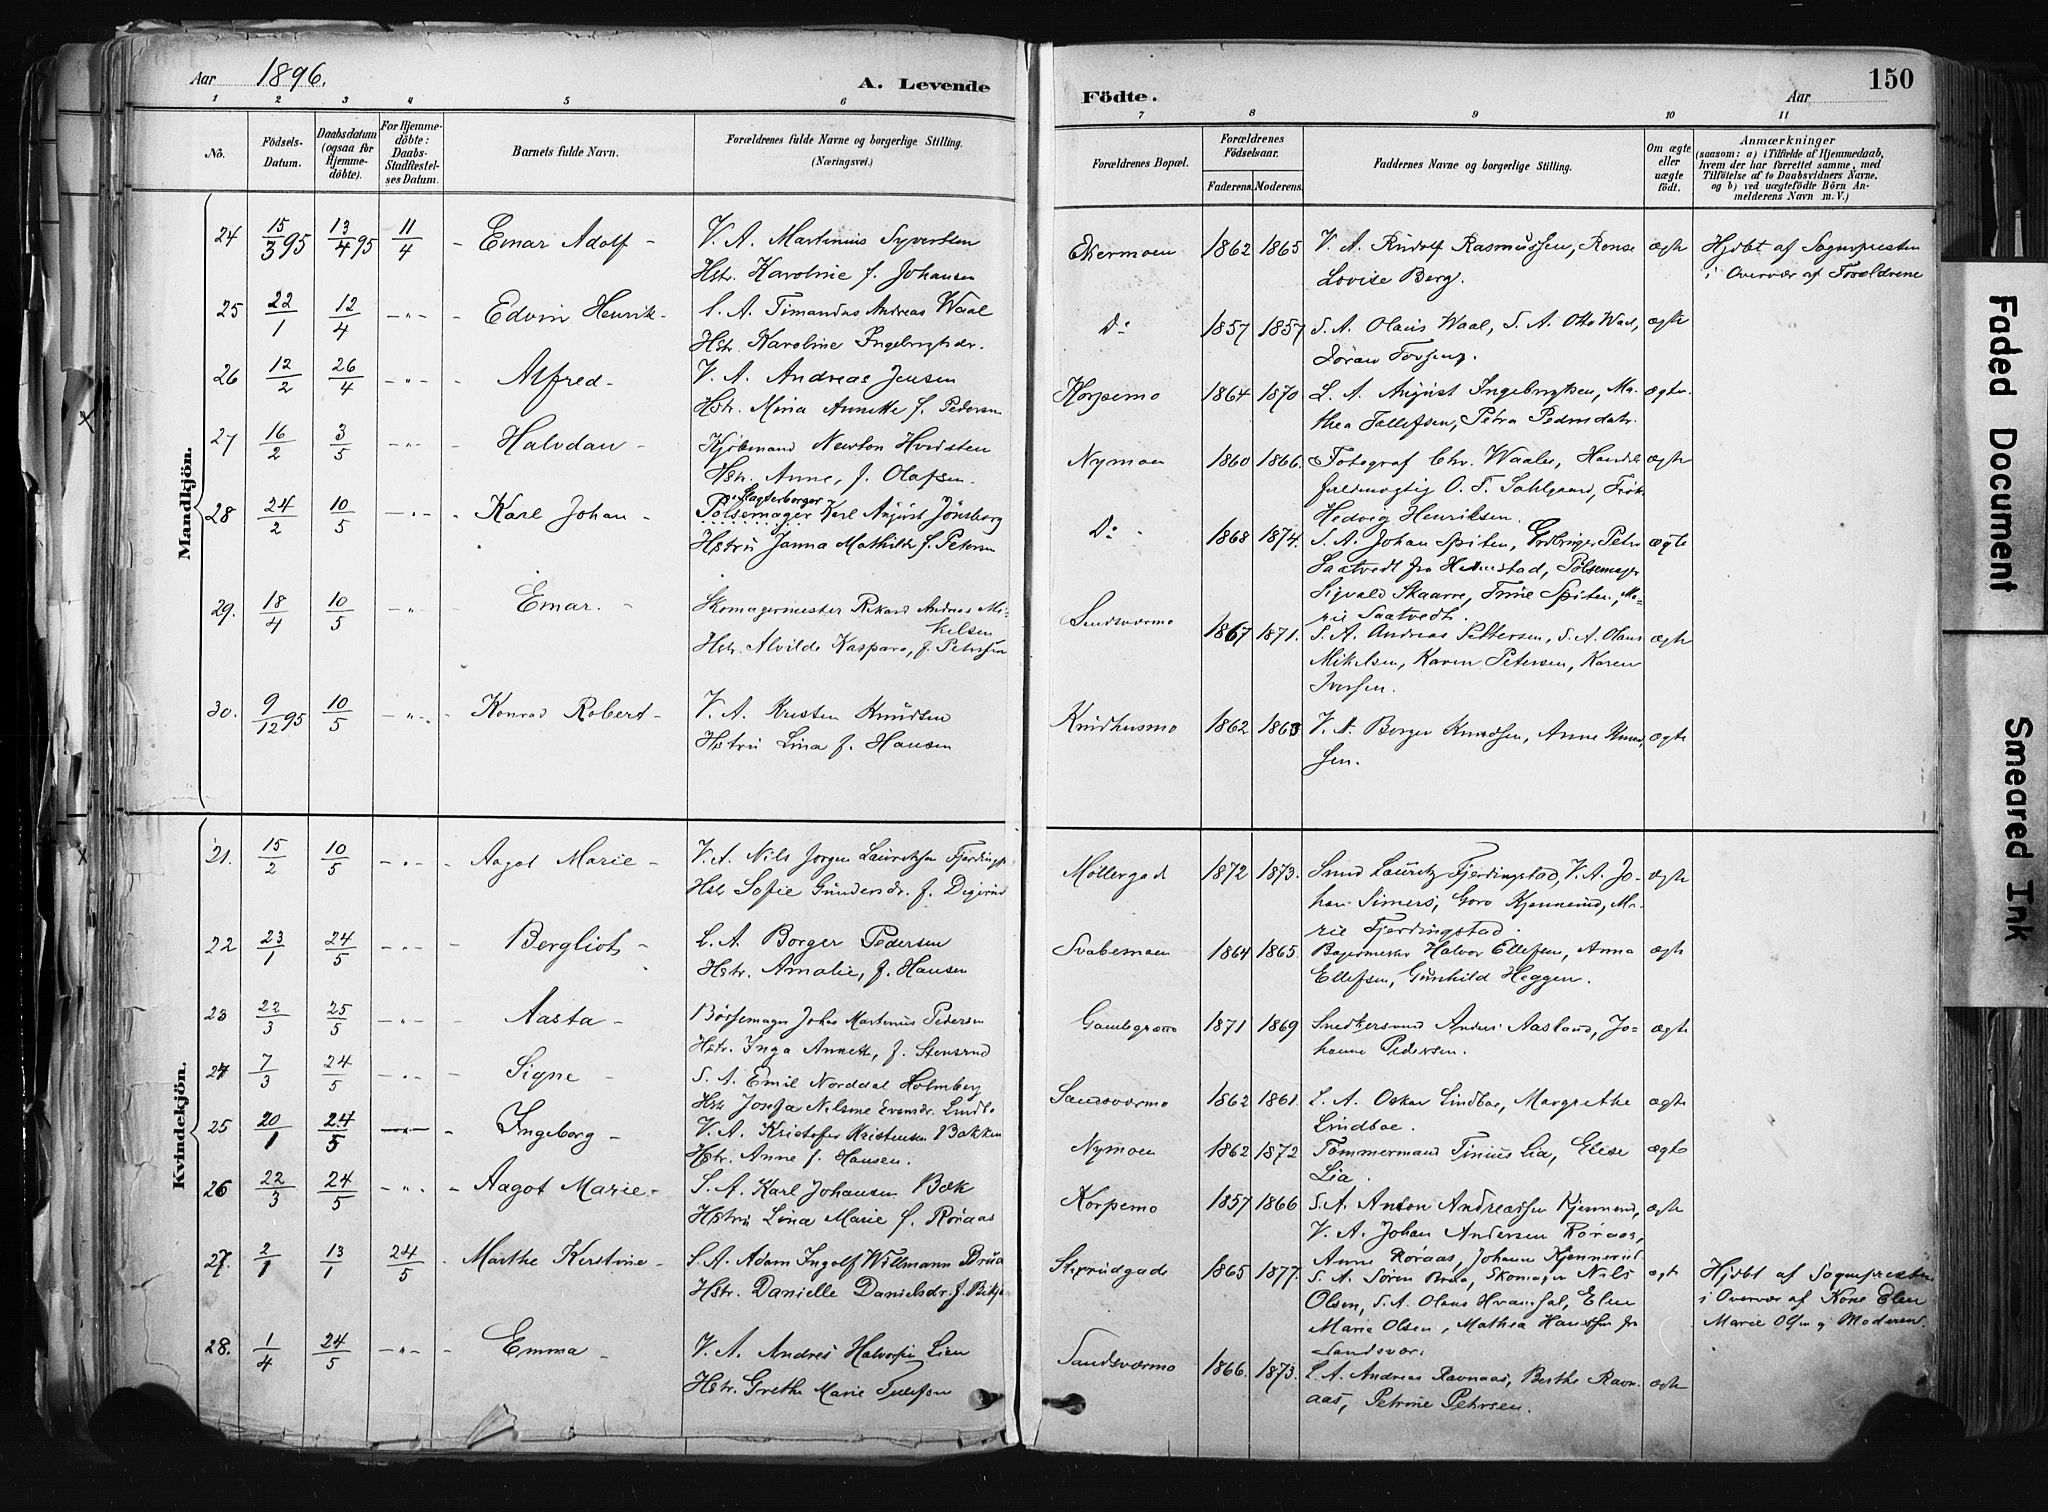 Aar 1896.
A. Levende
Födte.
Aar
150
1 2 3 4 5 6 7 8 9 10 11
No.
Födsels-
Datum.
Daabsdatum
(ogsaa for
Hjemme-
döbte).
For Hjemme-
döbte:
Daabs-
Stadfæstel-
ses Datum.
Barnets fulde Navn.
Forældrenes fulde Navne og borgerlige Stilling.
(Næringsvei.)
Forældrenes Bopæl.
Forældrenes
Födselsaar.
Faderens. Moderens.
Faddernes Navne og borgerlige Stilling.
Om ægte
eller
uægte
födt.
Anmærkninger
(saasom: a) i Tilfælde af Hjemmedaab,
hvem der har forrettet samme, med
Tilföielse af to Daabsvidners Navne,
og b) ved uægtefödte Börn An-
melderens Navn m. V.)
Mandkjön.
24 15/3 95 13/4 95 11/4 - Einar Adolf - V. A. Martinius Syvertsen
Hstr. Karoline f. Johansen
Ekermoen 1862 1865 V. A. Rudolf Rasmussen, Ronse
Lovise Berg.
ægte Hjdbt af Sognepresten
i Overvær af Forældrene
25 22/1 12/4 - " - - Edvin Henrik - S. A. Timandus Andreas Waal
Hstr. Karoline Ingebrigtsdr.
Do 1857 1857 S. A. Olaus Waal, S. A. Otto Waal,
ægte
26 12/2 26/4 - " - - Alfred - V. A. Andreas Jensen
Hstr. Mina Annette f. Pedersen
Korpemo 1864 1870 L. A. August Ingebrigtsen, Ma-
thea Tollefsen, Petra Pedersdatr.
ægte
27 16/2 3/5 - " - - Halvdan - Kjöbmand Newton Hvidsten
Hstr. Anne, f. Olafsen.
Nymoen 1860 1866. Fotograf Chr. Waaler, Handels
fuldmægtig O. T. Sahlgaard, Frök.
Hedvig Henriksen.
ægte
28 24/2 10/5 - " - - Karl Johan - Slagterborger
Pölsemager Karl August Jönsberg
Hstru Janna Mathilde f. Petersen
Do 1868 1874. S. A. Johan Spiten, Ordbringer Peter
Saatvedt fra Holmestad, Pölsemager
Sigvald Skaarre, Trine Spiten, Ma-
rie Saatvedt.
ægte
29. 18/4 10/5 - " - - Einar. - Skomagermester Rikard Andreas Mi-
kelsen
Hstr. Alvilde Kaspara, f. Petersen
Sandsværmo 1867 1871. S. A. Andreas Pettersen, S. A. Olaus
Mikelsen, Karen Petersen, Karen
Iversen.
ægte
30. 9/12 95 10/5 - " - - Konrad Robert - V. A. Kristen Knudsen
Hstru Lina f. Hansen
Knudhusmo 1862 1863 V. A. Borger Knudsen, Anne Knud-
sen.
ægte
Kvindekjön.
21. 15/2 10/5 - " - - Aagot Marie - V. A. Nils Jorgen Lauritzsen Fjerdingst
Hstr Sofie Gundersdr. f. Digerud
Möllergad 1872 1873. Smed Lauritz Fjerdingstad, V. A. Jo-
han Simers, Goro Kjennerud, Ma-
rie Fjerdingstad.
ægte
22 23/1 24/5 - " - - Bergliot - L. A. Borger Pedersen
Hstr. Amalie, f. Hansen
Svabemoen 1864 1865. Bagermester Halvor Ellefsen, Anna
Ellefsen, Gunhild Heggen.
ægte
23 22/3 25/5 - " - - Aasta - Börsemager Johan Martinius Pedersen
Hstr. Inga Annette, f. Stensrud
Gamlegrænd 1871 1869 Snedkersvend Anders Aasland, Jo-
hanne Pedersen.
ægte
24 7/3 24/5 - " - - Signe - S. A. Emil Norddal Holmberg
Hstr Josefa Nilsine Evensdr. Lindbo
Sandsværmo 1862 1861. L. A. Oskar Lindboe, Margrethe
Lindboe.
ægte
25 20/1 24/5 - " - - Ingeborg - V. A. Kristofer Kristensen Bakken
Hstr. Anne f. Hansen.
Nymoen 1862 1872 Tömmermand Tinius Lia, Elise
Lia.
ægte
26 22/3 24/5 - " - - Aagot Marie - S. A. Karl Johansen Bæk
Hstru Lina Marie f. Röraas
Korpemo 1857 1866 S. A. Anton Andreassen Kjennerud,
V. A. Johan Andersen Röraas,
Anne Röraas, Johanne Kjennerud
ægte
27. 2/1 13/1 24/5 - Marthe Kirstine - S. A. Adam Ingolf Willmann Brua
Hstr. Danielle Danielsdr. f.
Stiprudgade 1865 1877. S. A. Sören Brua, Skomager Nils
Olsen, S. A. Olaus Hvamsal, Elen
Marie Olsen, Mathea Hanssen fra
Sandsvær.
ægte Hjdbt af Sognepresten
i Overvær af Kone Elen
Marie Olsen og Moderen
28. 1/4 24/5 - " - - Emma - V. A. Andres Halvorsen Lien
Hstr. Grethe Marie Tollefsen
Sandsværmo 1866. 1873. L. A. Andreas Ravnaas, Berthe Ravn-
aas, Petrine Petersen.
ægte
Faded Document
Smeared Ink